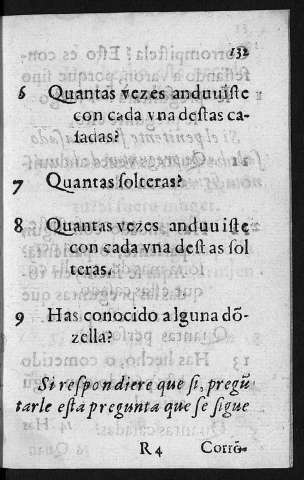 132
6 Quantas vezes anduuiste
con cada vna destas ca-
sadas?
7 Quantas solteras?
8 Quantas vezes anduuiste
con cada vna destas sol
teras.
9 Has conocido alguna dõ-
zella?
Si respondiere que si, pregũ
tarle esta pregunta que se sigue
R 4 Corrõ-